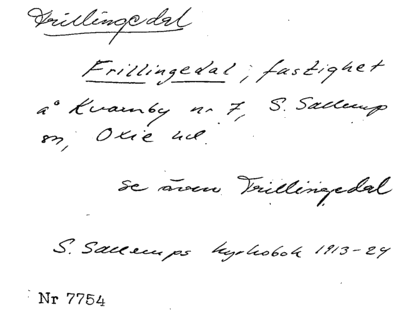 Frillingedal
Frillingedal; fastighet
å Kvarnby nr 7, S. Sallerup
sn, Oxie hd.
se även Trillingedal
S. Sallerups kyrkobok 1913-24
Nr 7754